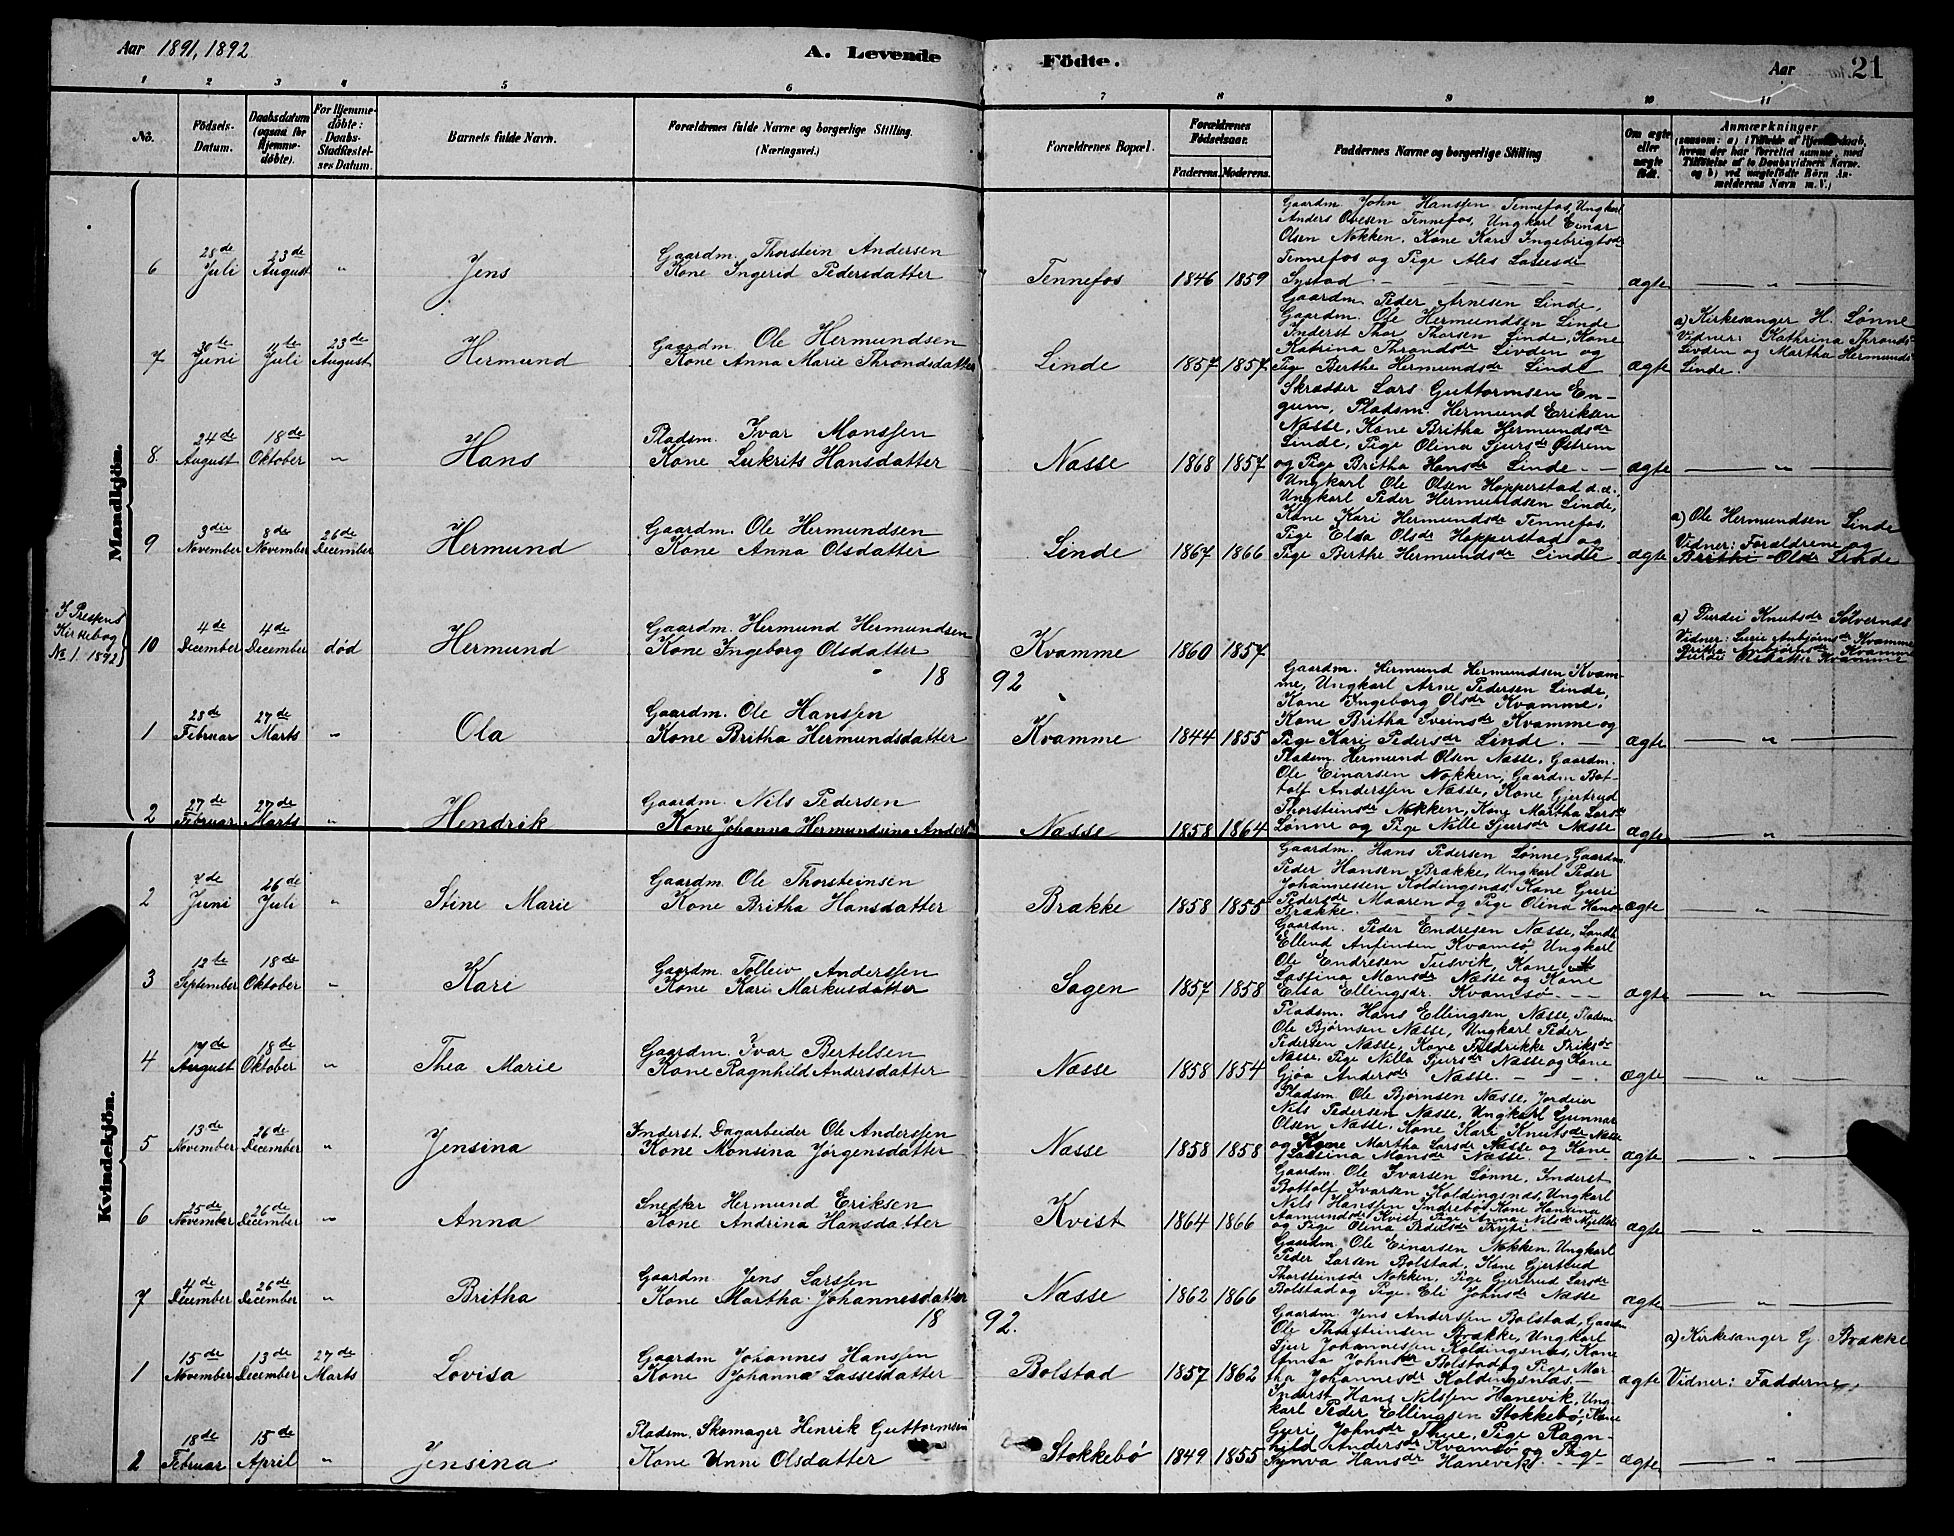 Aar 1891, 1892
A. Levende
Födte.
Aar
21
1 2 3 4 5 6 7 8 9 10 11
No.
Födsels-Datum.
Daabsdatum (ogsaa for Hjemme-döbte).
For Hjemme-döbte: Daabs-Stadfæstel-ses Datum.
Barnets fulde Navn.
Forældrenes fulde Navne og borgerlige Stilling. (Næringsvei.)
Forældrenes Bopæl.
Forældrenes Födselsaar.
Faderens. Moderens.
Faddernes Navne og borgerlige Stilling
Om ægte eller uægte födt.
Anmærkninger
(saasom: a) i Tilfælde af Hjemmedaab, hvem der har forrettet samme, med Tilföielse af to Daabsvidners Navne. og b) ved uægtefödte Börn An-melderens Navn m. V.)
Mandkjön.
6
28de Juli
23de August
"
Jens
Gaardm. Thorstein Andersen
Kone Ingerid Pedersdatter
Tennefos
1846 1859
Gaardm. John Hanssen Tennefos, Ungkarl
Anders Ovesen Tennefos, Ungkarl Einar
Olsen Nokken, Kone Kari Ingebrigtsdr
Tennefos og Pige Ales Lassesdr
Systad
ægte
"
7
30te Juni
11te Juli
23de August
Hermund
Gaardm. Ole Hermundsen
Kone Anna Marie Throndsdatter
Linde
1857 1857
Gaardm. Peder Arnesen Linde,
Gaardm. Ole Hermundsen Linde
Inderst Thor Thorsen Linde, Kone
Katrina Throndsdr Livden og
Pige Berthe Hermundsdr Linde
ægte
a) Kirkesanger H. Lønne
Vidner: Kathrina Thronds-
Livden og Martha Hermunds-
Linde.
8
24de August
18de Oktober
"
Hans
Pladsm. Ivar Monssen
Kone Lukrits Hansdatter
Næsse
1868 1857
Skrædder Lars Guttormsen En-
gum, Pladsm. Hermund Eriksen
Næsse, Kone Britha Hermundsdr
Linde, Pige Olina Sjursdr Østrem
og Pige Britha Hansdr Linde
ægte
"
9
3die November
8de November
26de December
Hermund
Gaardm. Ole Hermundsen
Kone Anna Olsdatter
Linde
1867 1866
Ungkarl Ole Olsen Hopperstad d.æ.,
Ungkarl Peder Hermundsen Linde,
Kone Kari Hermundsdr Tennefos,
Pige Elsa Olsdr Hopperstad og
Pige Berthe Hermundsdr Linde
ægte
a) Ole Hermundsen Linde
Vidner: Forældrene og
Berthe Olsdr Linde
I Prestens
Kirkebog
No 1. 1892
10
4de December
4de December
død
Hermund
Gaardm. Hermund Hermundsen
Kone Ingeborg Olsdatter
Kvamme
1860 1857
a) Durdei Knutsdr Solvernds
Vidner: Lucie Anbjørnsdr Kvamme
Britha Anbjørnsdr Kvamme
Olsdatter Kvamme
1892
1
28de Februar
27de Marts
"
Ola
Gaardm. Ole Hanssen
Kone Britha Hermundsdatter
Kvamme
1844 1855
Gaardm. Hermund Hermundsen Kvam-
me, Ungkarl Arne Pedersen Linde,
Kone Ingeborg Olsdr Kvamme,
Kone Britha Sveinsdr Kvamme og
Pige Kari Pedersdr Linde.
ægte
"
2
27de Februar
27de Marts
"
Hendrik
Gaardm. Nils Pedersen
Kone Johanna Hermundina Andersdr
Næsse
1858 1864
Pladsm. Hermund Olsen Næsse, Gaardm.
Ole Einarsen Nokken, Gaardm Bot-
tolf Anderssen Næsse, Kone Gjertrud
Thorsteinsdr Nokken, Kone Martha Larsdr
Lønne og Pige Nille Sjursdr Næsse
ægte
"
Kvindekjön.
2
7de Juni
26de Juli
"
Stine Marie
Gaardm. Ole Thorsteinsen
Kone Britha Hansdatter
Brække
1858 1855
Gaardm. Hans Pedersen Lønne, Gaardm.
Peder Hansen Brække, Ungkarl Peder
Johannessen Koldingsnæs, Kone Guri
Pedersdr Maaren og Pige Olina Hansdr
Brække.
ægte
"
3
12te September
18de Oktober
"
Kari
Gaardm. Tolleiv Anderssen
Kone Kari Markusdatter
Sagen
1857 1858
Gaardm. Peder Endresen Næsse, Landh.
Ellend Anfinsen Kvamsø Ungkarl
Ole Endresen Tusvik, Kone
Lastina Monsdr Næsse og Kone
Elsa Ellingsdr Kvamsø
ægte
"
4
17de August
18de Oktober
"
Thea Marie
Gaardm. Ivar Bertelsen
Kone Ragnhild Andersdatter
Næsse
1858 1854
Pladsm. Hans Ellingsen Næsse, Pladsm
Ole Bjørnsen Næsse, Ungkarl Peder
Pedersen Næsse, Kone Fredrikke Friksdr
Næsse, Pige Nilla Sjursdr Næsse og Kone
Gjøa Andersdr Næsse.
ægte
"
5
13de November
26de December
"
Jensina
Inderst. Dagarbeider Ole Anderssen
Kone Monsina Jørgensdatter
Næsse
1858 1858
Pladsm Ole Bjørnsen Næsse, Jordeier
Nils Pedersen Næsse, Ungkarl Gunnar
Olsen Næsse, Kone Kari Knutsdr Næsse
og Kone Martha Larsdr Næsse og Kone
Lastina Monsdr Næsse.
ægte
"
6
25de November
26de December
"
Anna
Snedker Hermund Eriksen
Kone Andrina Hansdatter
Kvist
1864 1866
Gaardm. Ole Ivarsen Lønne, Inderst
Bottolf Ivarsen Koldingsnæs, Ungkarl
Nils Hanssen Indrebø, Kone Hansina
Aamundsdr Kvist, Pige Anna Nilsdr
og Pige Olina Pedersdr
ægte
"
7
4de December
26de December
"
Britha
Gaardm. Jens Larssen
Kone Martha Johannesdatter
Næsse
1862 1866
Gaardm. Ole Einarsen Nokken, Ungkarl
Peder Larsen Bolstad, Kone Gjertrud
Thorsteinsdr Nokken, Pige Gjertrud Larsdr
Bolstad og Pige Eli Johnsdr Næsse
ægte
"
1892.
1
15de November
13de December
27de Marts
Lovisa
Gaardm Johannes Hanssen
Kone Johanna Lassesdatter
Bolstad
1857 1862
Gaardm. Jens Anderssen Bolstad, Gaardm
Ole Thorsteinsen Brække, Ungkarl
Sjur Johannessen Koldingsnæs, Kone
Anna Johnsdr Bolstad og Pige Mar-
tha Johannesdr Koldingsnæs.
ægte
a) Kirkesanger G. Brække
Vidner: Fadderne
2
18de Februar
15de April
"
Jensina
Pladsm. Skomager Henrik Guttormsen
Kone Unni Olsdatter
Stokkebø
1849 1855
Inderst Hans Nilssen Hanevik, Ung-
karl Peder Ellingsen Stokkebø, Kone
Guri Johnsdr Thue, Pige Ragn-
hild Andersdr Kvamsø og Pige
Synva Hansdr Hanevik
ægte
"